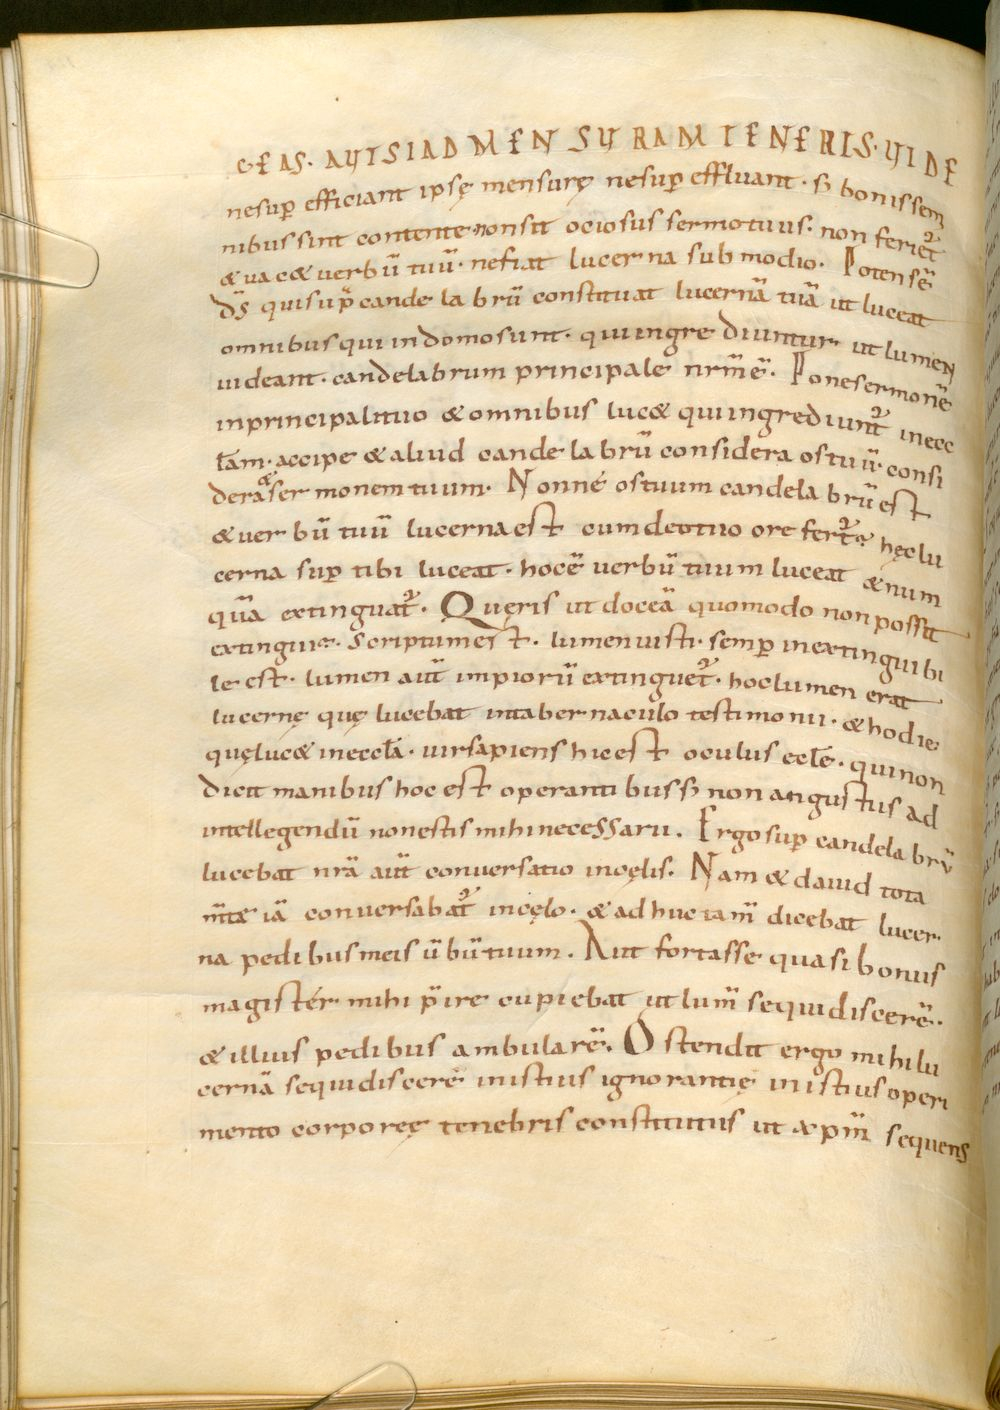 GEAS. AUTSIADMENSURAMTENERIS. UIDE
nesup̄ efficiant ipsę mensurę nesup̄ effluant. s; bonissem
nibus sint contente. non sit ociosus sermotuus. non feriet̄
& vac& verbū tuū. nefiat lucerna sub modio. Potensē
d̄s quisup̄ candelabrū constituat lucernā tuā ut luceat
omnibus qui indomosunt. quiingrediuntur ut lumen
uideant. candelabrum principale nrm̄ē. Ponesermonē
inprincipalituo & omnibus luc& quiingrediunt̄ inecc
l̄am. accipe & aliud candelabrū considera ostuū. consi
dera & sermonem tuum. Nonne ostuum candelabrū est
& verbū tuū lucerna est cum detuo ore fert̄. hęclu
cerna sup̄ tibi luceat. hocē verbū tuum luceat & num
quā extinguat̄. Quęris ut doceā quomodo nonpossit
extingui. Scriptumest. lumeniusti. semp̄ inextinguibi
le est. lumen aut̄ impiorū extinguet̄. hoclumen erat
lucernę quę lucebat intabernaculo testimonii. & hodie
quęluc& ineccl̄a. uirsapiens hicest oculus eccl̄e. quinon
dicit manibus hoc est operantibus s; non angustus ad
intellegendū nonestis mihinecessarii. Ergosup̄ candelabrū
lucebat nr̄a aut̄ conversatio incęlis. Nam & dauid tota
m̄te iā conversabat̄ incęlo. & adhuc tam̄ dicebat lucer
na pedibusmeis ūbūtuum. Aut fortasse quasibonus
magister mihi p̄ire cupiebat ut lum̄ sequidiscerē.
& illius pedibus ambularē. Ostendit ergo mihilu
cernā sequidiscerē inistius ignorantię inistius operi
mento corporeę tenebris constitutus ut & pm̄ sequens